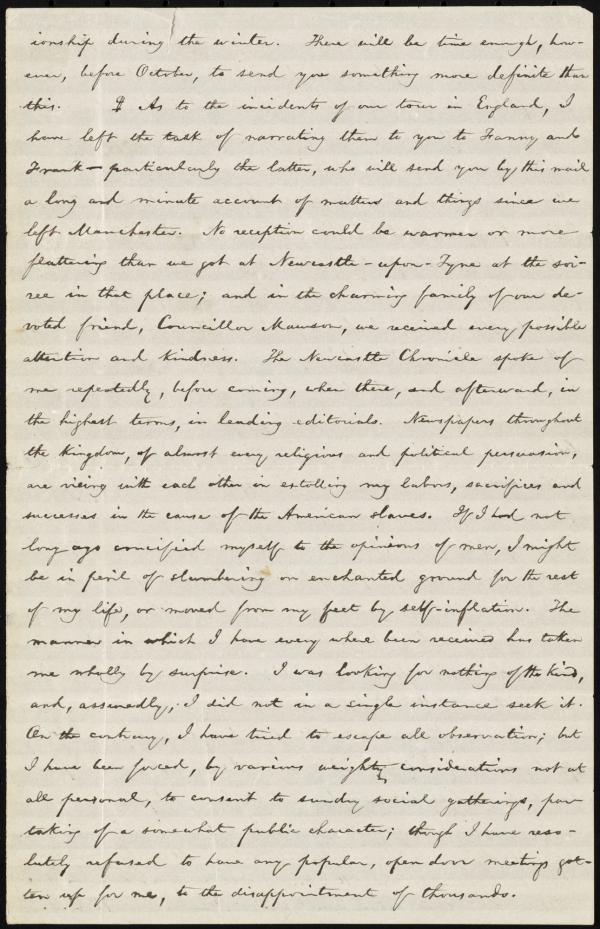 ionship during the winter. There will be time enough, how-
ever, before October, to send you something more definite than
this. ¶ As to the incidents of our tour in England, I
have left the task of narrating them to you to Fanny and
Frank — particularly the latter, who will send you by this mail
a long and minute account of matters and things since we
left Manchester. No reception could be warmer or more
flattering than we got at Newcastle-upon-Tyne at the soi-
ree in that place; and in the charming family of our de-
voted friend, Councillor Mawson, we received every possible
attention and kindness. The Newcastle Chronicle spoke of
me repeatedly, before coming, when there, and afterward, in
the highest terms, in leading editorials. Newspapers throughout
the kingdom, of almost every religious and political persuasion,
are vieing with each other in extolling my labors, sacrifices and
successes in the cause of the American slaves. If I had not
long ago crucified myself to the opinions of men, I might
be in peril of slumbering on enchanted ground for the rest
of my life, or moved from my feet by self-inflation. The
manner in which I have every where been received has taken
me wholly by surprise. I was looking for nothing of the kind,
and, assuredly, I did not in a single instance seek it.
On the contrary, I have tried to escape all observation; but
I have been forced, by various weighty considerations not at
all personal, to consent to sundry social gatherings, par-
taking of a somewhat public character; though I have reso-
lutely refused to have any popular, open door meetings got-
ten up for me, to the disappointment of thousands.